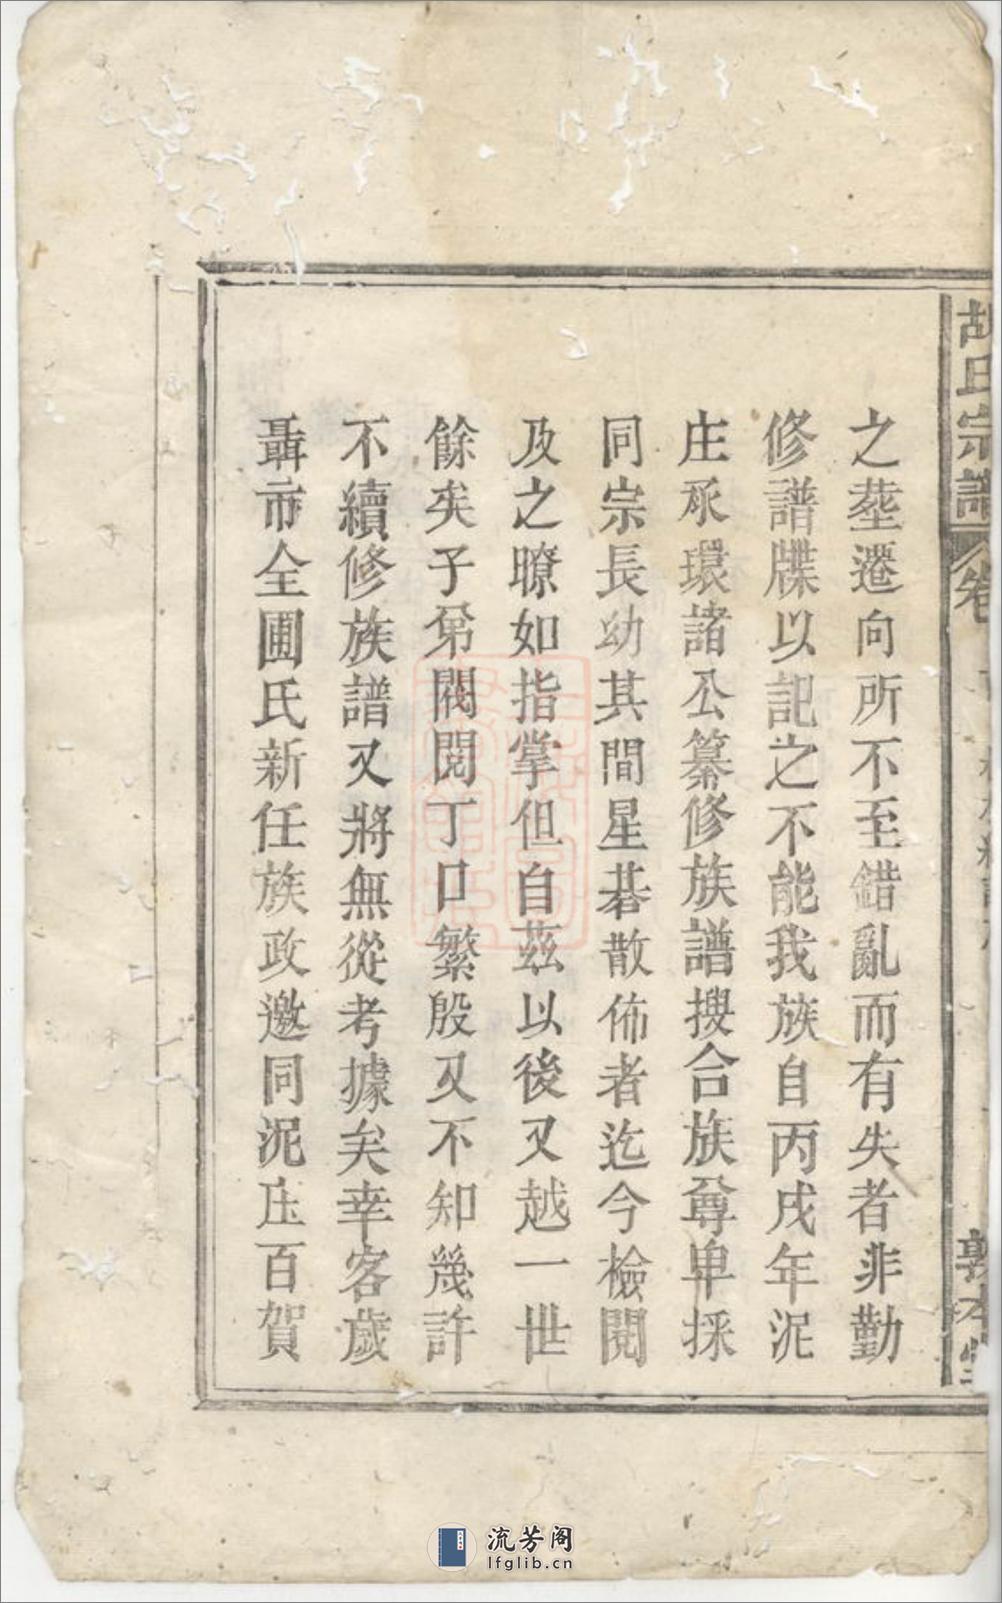 胡氏宗譜
卷
敦本堂
之塟遷向所不至錯亂而有失者非勤
修譜牒以記之不能我族自丙戌年泥
庄承環諸公纂修族譜搜合族尊卑採
同宗長幼其間星碁散佈者迄今檢閱
及之瞭如指掌但自茲以後又越一世
餘矣子弟閥閱丁口繁殷又不知幾許
不續修族譜又將無從考據矣幸客歲
聶市全圃氏新任族政邀同泥庄百賀
流芳阁
lfglib.cn